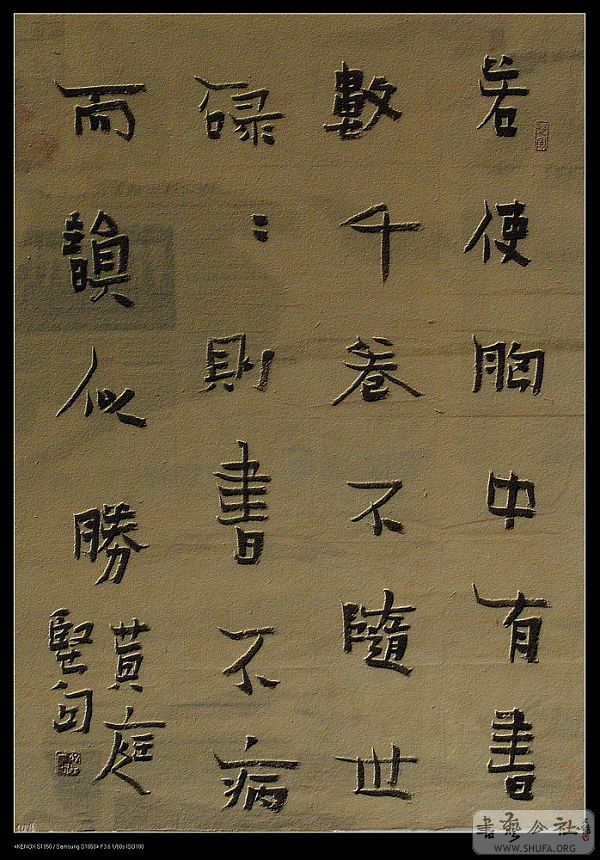 若使胸中有書
數千卷不隨世
碌〻則書不病
而韻似勝
黄庭
堅句
<KENOX S1050 / Samsung S1050> F3.6 1/60s ISO100
WWW.SHUFA.ORG